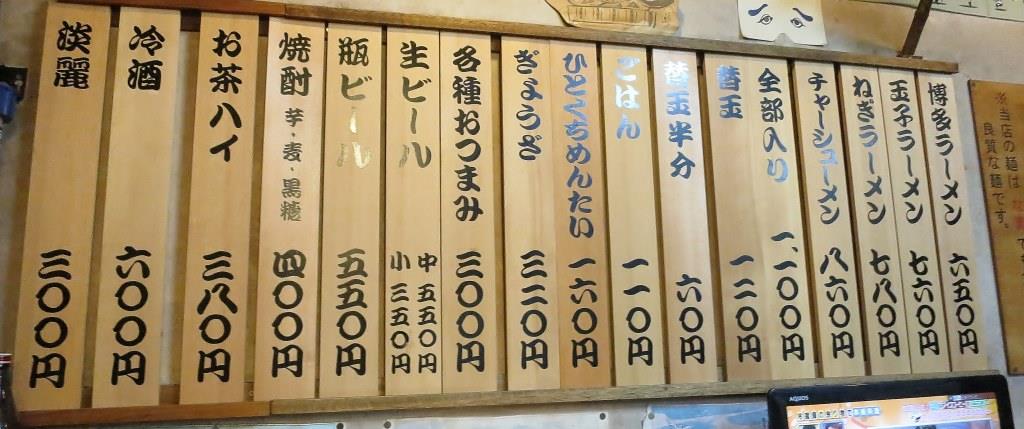 博多ラーメン 六五〇円
玉子ラーメン 七六〇円
ねぎラーメン 七八〇円
チャーシューメン 八六〇円
全部入り 一、一〇〇円
替玉 一二〇円
替玉半分 六〇円
ごはん 一一〇円
ひとくちめんたい 一六〇円
ぎょうざ 三二〇円
各種おつまみ 三〇〇円
生ビール 中 五五〇円
小 三五〇円
瓶ビール 五五〇円
焼酎 芋・麦・黒糖 四〇〇円
お茶ハイ 三八〇円
冷酒 六〇〇円
淡麗 三〇〇円
※当店の麺は
良質な麺です。
AQUOS